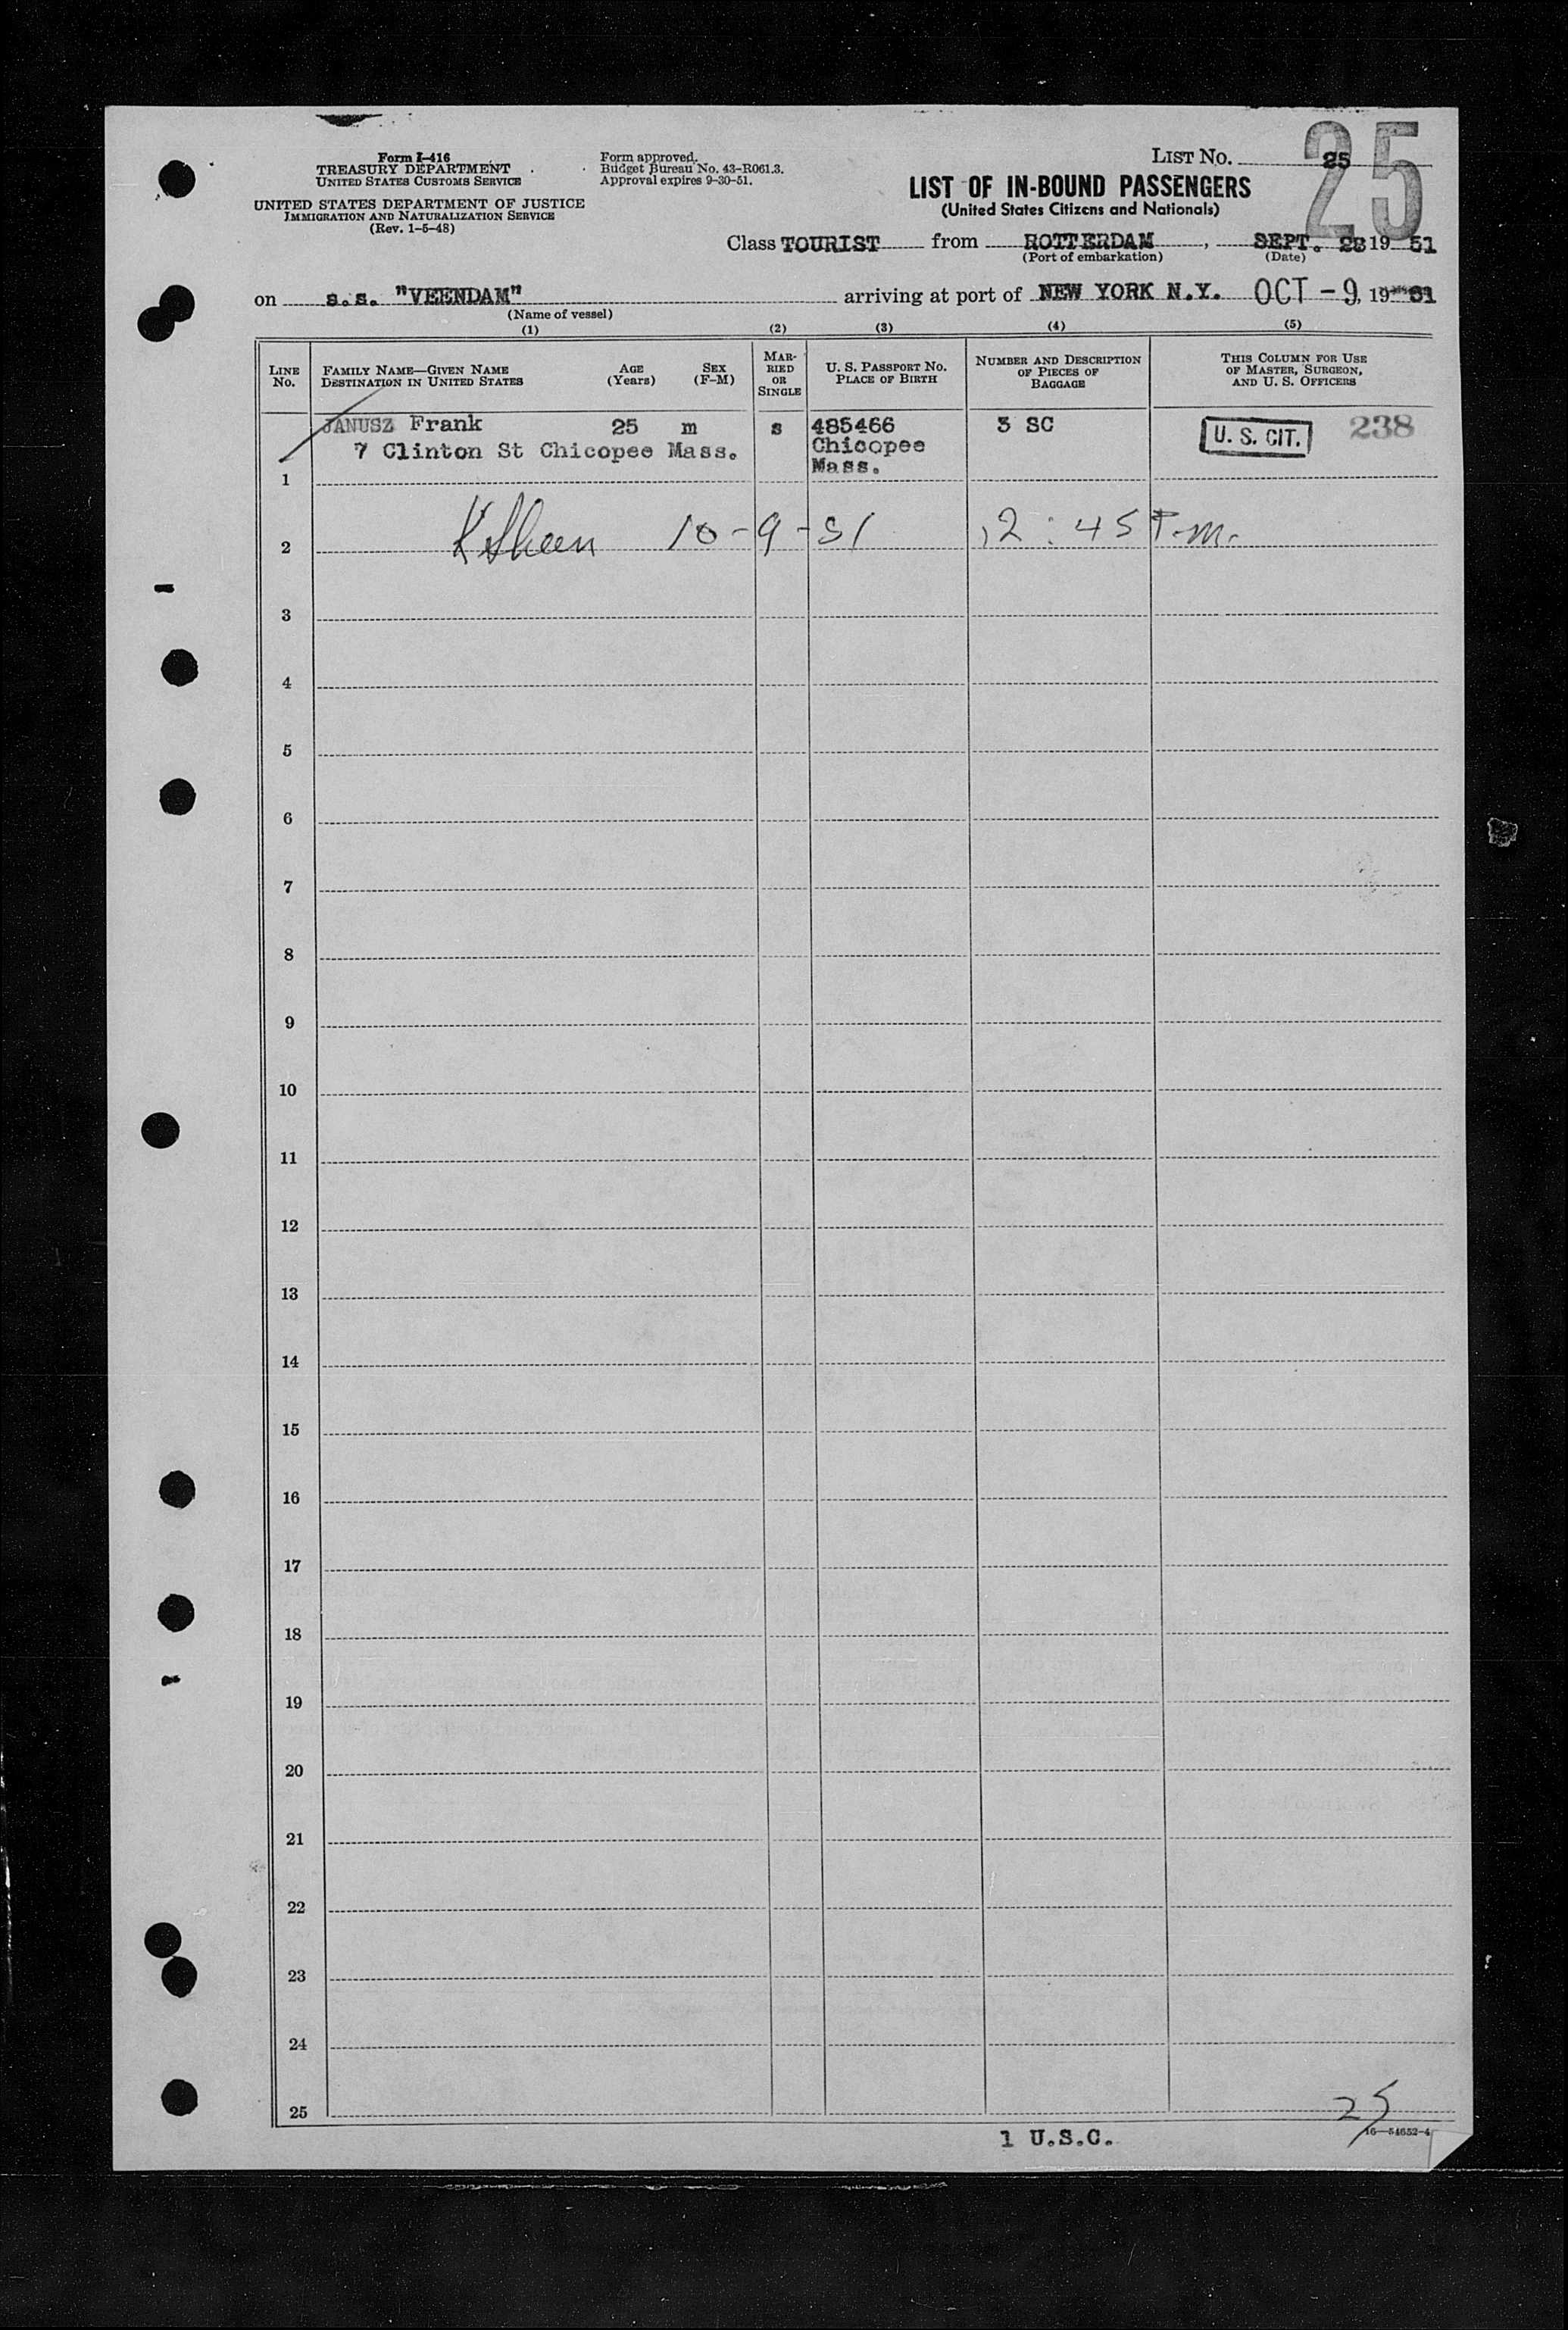 25
Form I-416
TREASURY DEPARTMENT
UNITED STATES CUSTOMS SERVICE
UNITED STATES DEPARTMENT OF JUSTICE
IMMIGRATION AND NATURALIZATION SERVICE
(Rev. 1-5-48)
Form approved.
Budget Bureau No. 43-R061.3.
Approval expires 9-30-51.
LIST No. 25
LIST OF IN-BOUND PASSENGERS
(United States Citizens and Nationals)
Class TOURIST from ROTTERDAM, SEPT. 28 19 51
(Port of embarkation) (Date)
on s.s. "VEENDAM" arriving at port of NEW YORK N.Y. OCT - 9, 19 51
(Name of vessel)
(1) (2) (3) (4) (5)
LINE No. FAMILY NAME—GIVEN NAME DESTINATION IN UNITED STATES AGE (Years) SEX (F-M) MARRIED OR SINGLE U. S. PASSPORT NO. PLACE OF BIRTH NUMBER AND DESCRIPTION OF PIECES OF BAGGAGE THIS COLUMN FOR USE OF MASTER, SURGEON, AND U. S. OFFICERS
JANUSZ Frank 25 m s 485466 3 SC U. S. CIT. 238
7 Clinton St Chicopee Mass. Chicopee
Mass.
1
2 10-9-51 12:45 P.m.
3
4
5
6
7
8
9
10
11
12
13
14
15
16
17
18
19
20
21
22
23
24
25
25
1 U.S.C.
16—54652-4